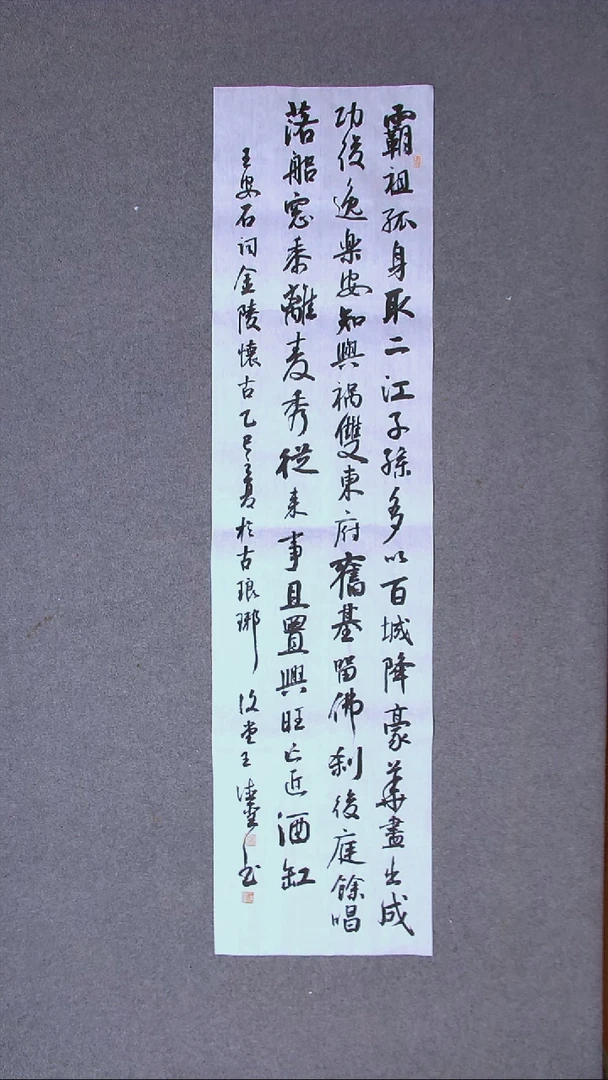 霸祖孤身取二江子孫多以百城降豪華盡出成
功後逸楽安知與禍雙東府舊基留佛刹後庭餘唱
落船窓黍離麦秀從来事且置興旺亡近酒缸
王安石词金陵懷古乙巳之夏於古琅琊 堂王书